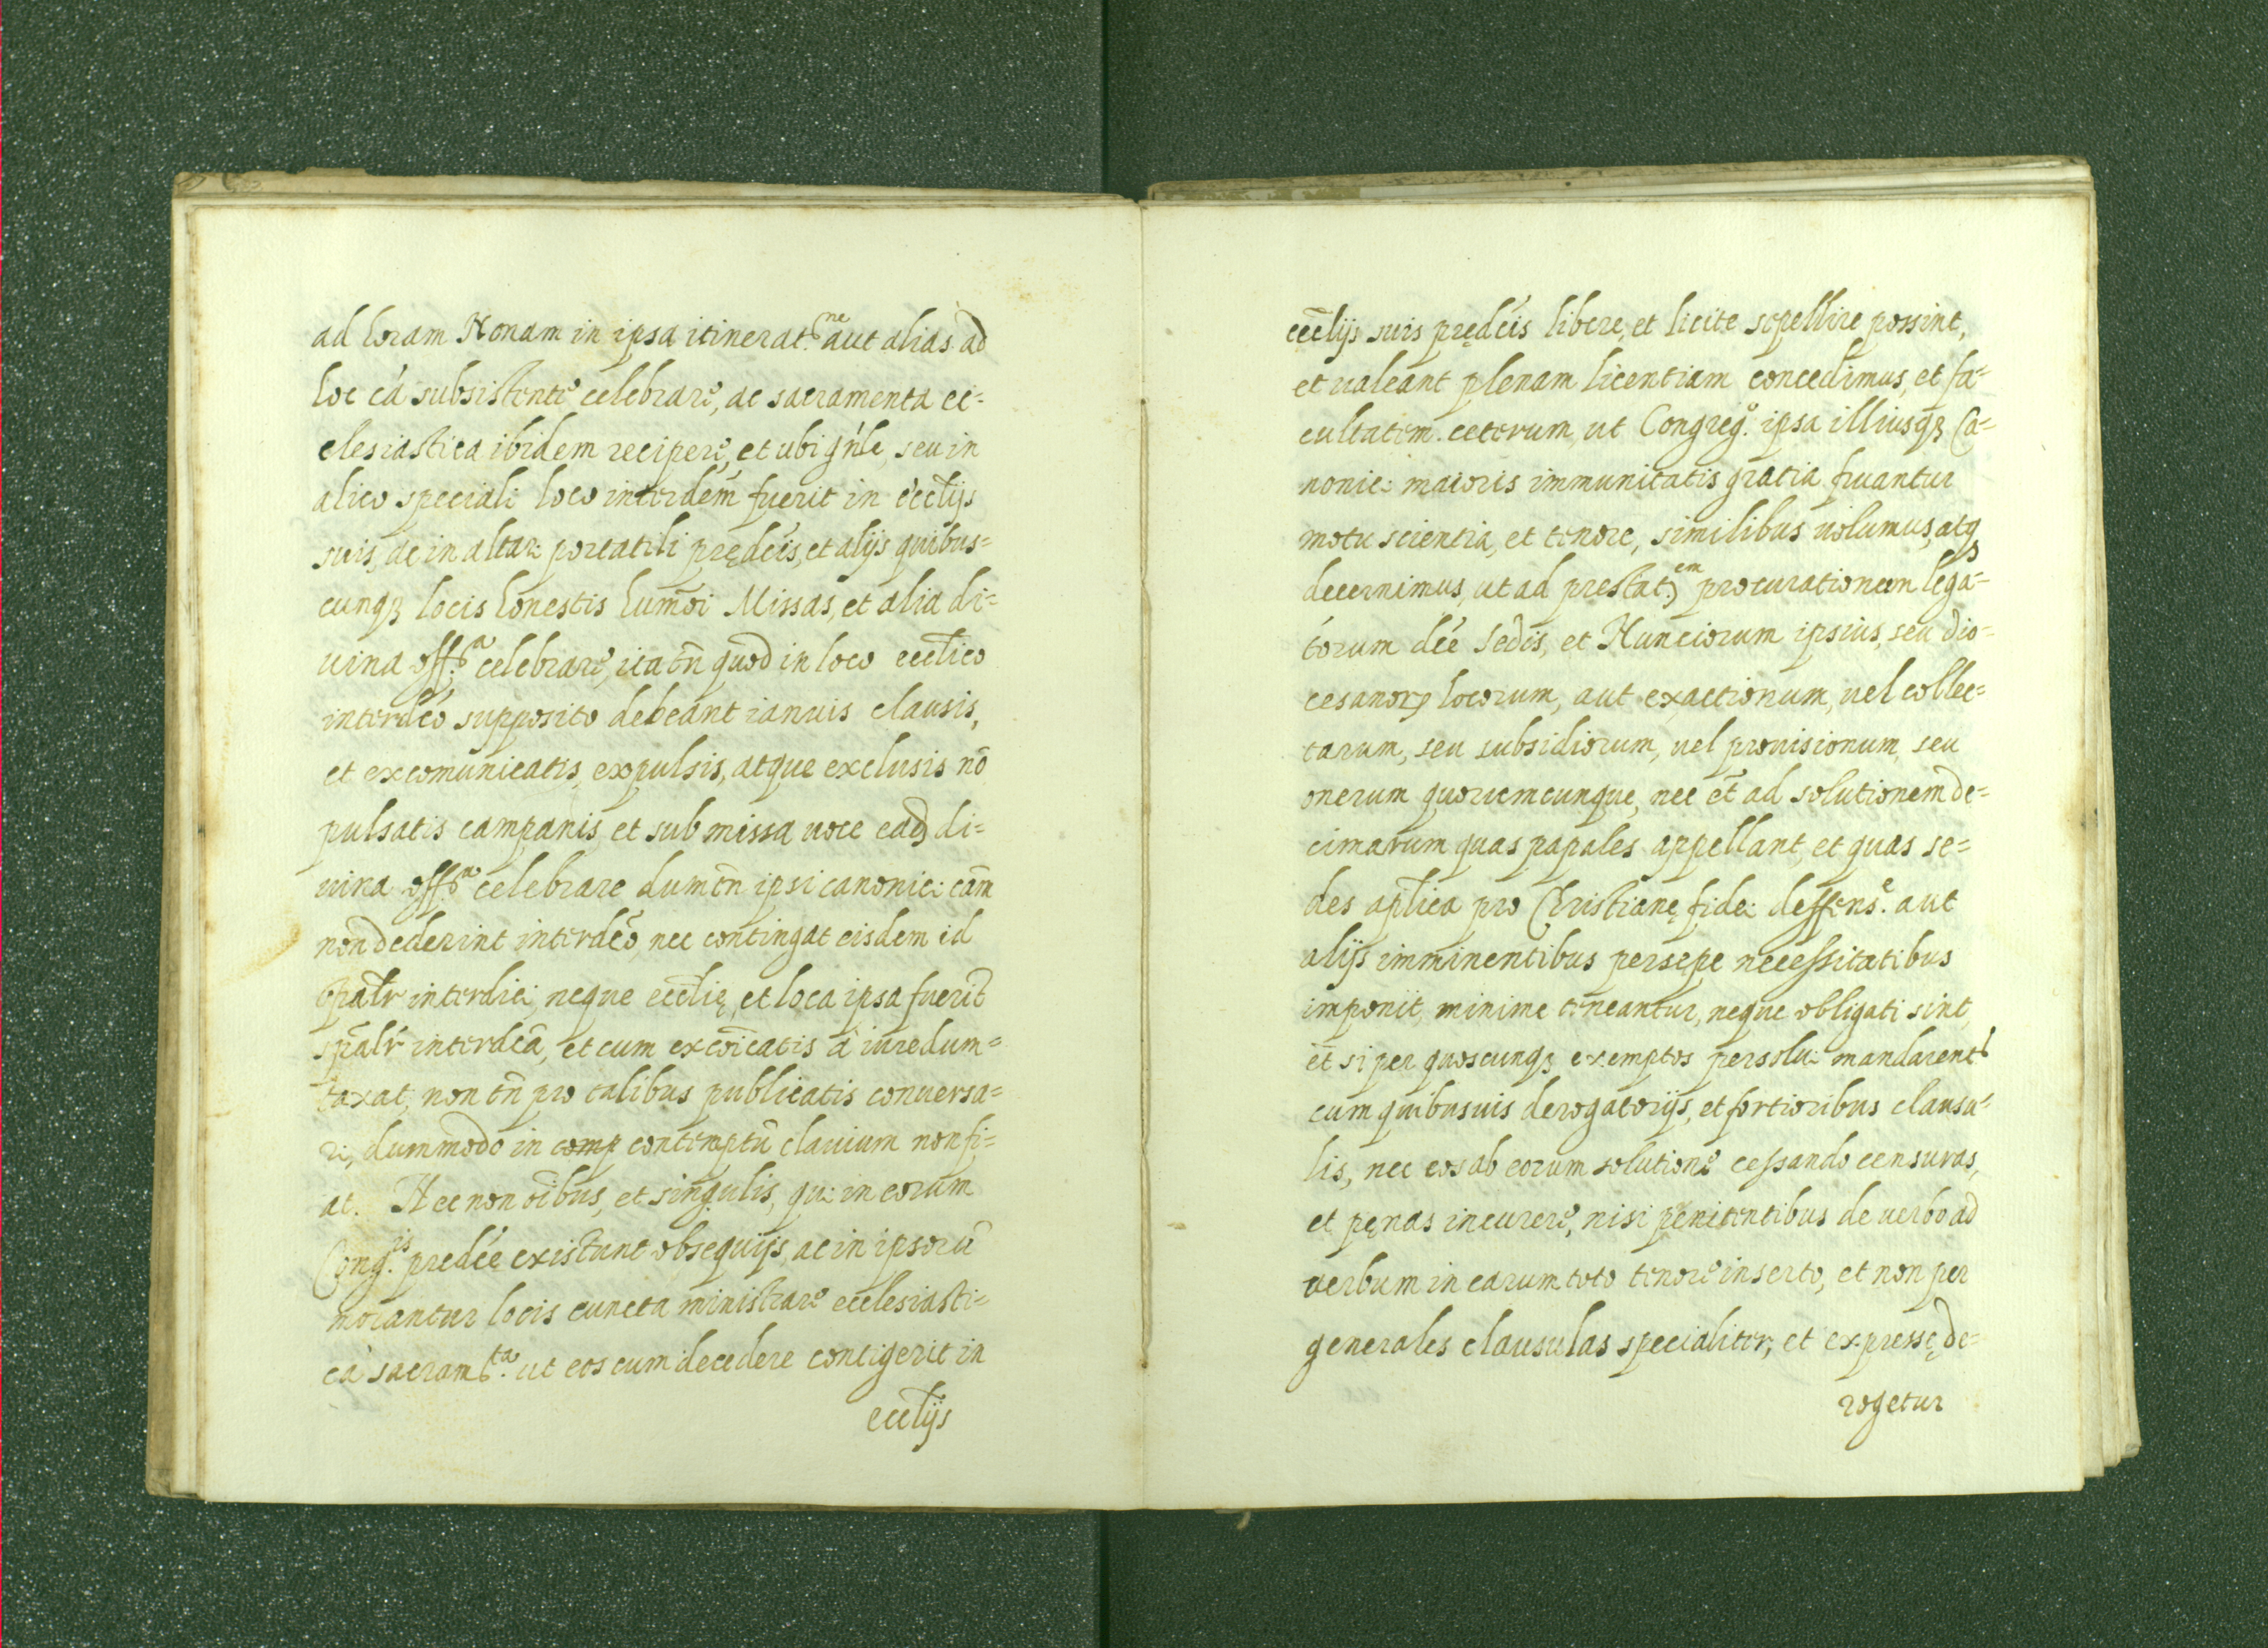 ad horam Nonam in ipsa itinerat.ne aut alias ad
hoc cá subsistente celebrare, ac sacramenta ec=
clesiastica ibidem recipere, et ubi gńle, seu in
alico speciali loco interdém fuerit in ecclijs
suis, ac in altar portatili prędcis, et alijs quibus=
cunqȝ locis honestis humōi Missas, et alia di=
uina off.a celebrare, ita tñ quod in loco ecclico
interdco supposito debeant ianuis clausis,
et excomunicatis, expulsis, atque exclusis nō
pulsatis campanis, et submissa uoce eadȝ di=
uina off.a celebrare dum tñ ipsi canonici cam̄
non dederint interdco, nec contingat eisdem id
spālr interdici, neque ecclię, et loca ipsa fuerit
spālr interdca, et cum excōicatis à iure dum=
taxat, non tñ pro talibus publicatis conuersa=
ri, dummodo in comp contemptū clauium non fi=
at. Nec non oībus, et singulis, qui in eorum
Cong.is predée existunt obsequijs, ac in ipsorū
morantur locis cuncta ministrare ecclesiasti=
ca sacram.ta ut eos cum decedere contigerit in
ecclijs
ecclijs suis prędcis libere, et licite sepellire possint,
et ualeant plenam licentiam concedimus, et fa=
cultatem. ceterum ut Congreg.o ipsa illiusqȝ Ca=
nonici maioris immunitatis gratia fruantur
motu scientia, et tenore, similibus uolumus, atqȝ
decernimus, ut ad prestat.em procurationem lega=
torum dée Sedis, et Nunciorum ipsius, seu dio=
cesanorȝ locorum, aut exactionum, uel collec=
tarum, seu subsidiorum, uel prouisionum, seu
onerum quorumcunque, nec et̄ ad solutionem de=
cimarum quas papales appellant, et quas se=
des aplica pro Christianę fidei deffens.e aut
alijs imminentibus persepe necessitatibus
imponit, minime teneantur, neque obligati sint,
et̄ si per quoscunqȝ exemptos persolui mandarent
cum quibusuis derogatorijs, et fortioribus clausu=
lis, nec eos ab eorum solutione cessando censuras,
et pęnas incurere, nisi penitentibus de uerbo ad
uerbum in earum toto tenore inserto, et non per
generales clausulas specialiter, et expressę de=
rogetur